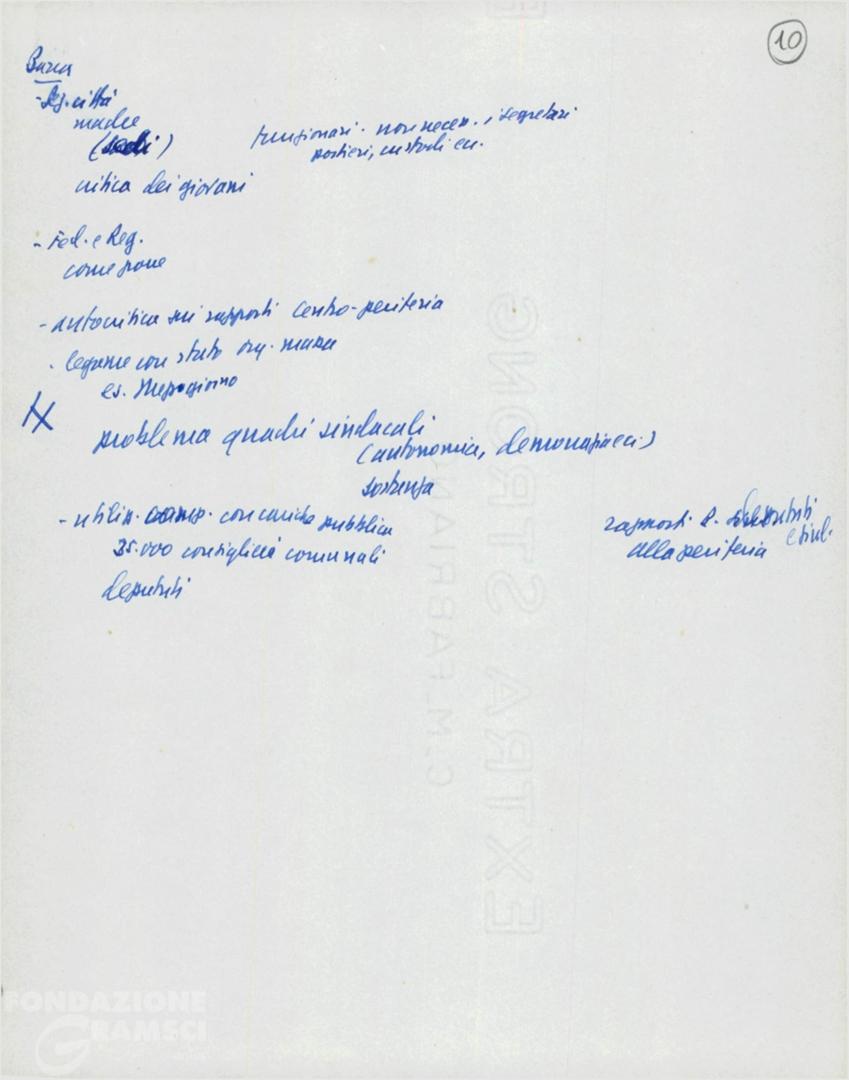 10
Barca
- Seg. città
madre
(sedi)
funzionari. non necess. i segretari
portieri, custodi ecc.
critica dei giovani
- Fed. e Reg.
come zone
- autocritica sui rapporti centro-periferia
- legame con stato org. massa
es. Mezzogiorno
problema quadri sindacali
(autonomia, democrazia ecc.)
sostanza
- utiliz. comp. con cariche pubbliche
35.000 consiglieri comunali
deputati
rapporti
alla periferia
G.M. FABRIANO
EXTRA STRONG
FONDAZIONE
GRAMSCI